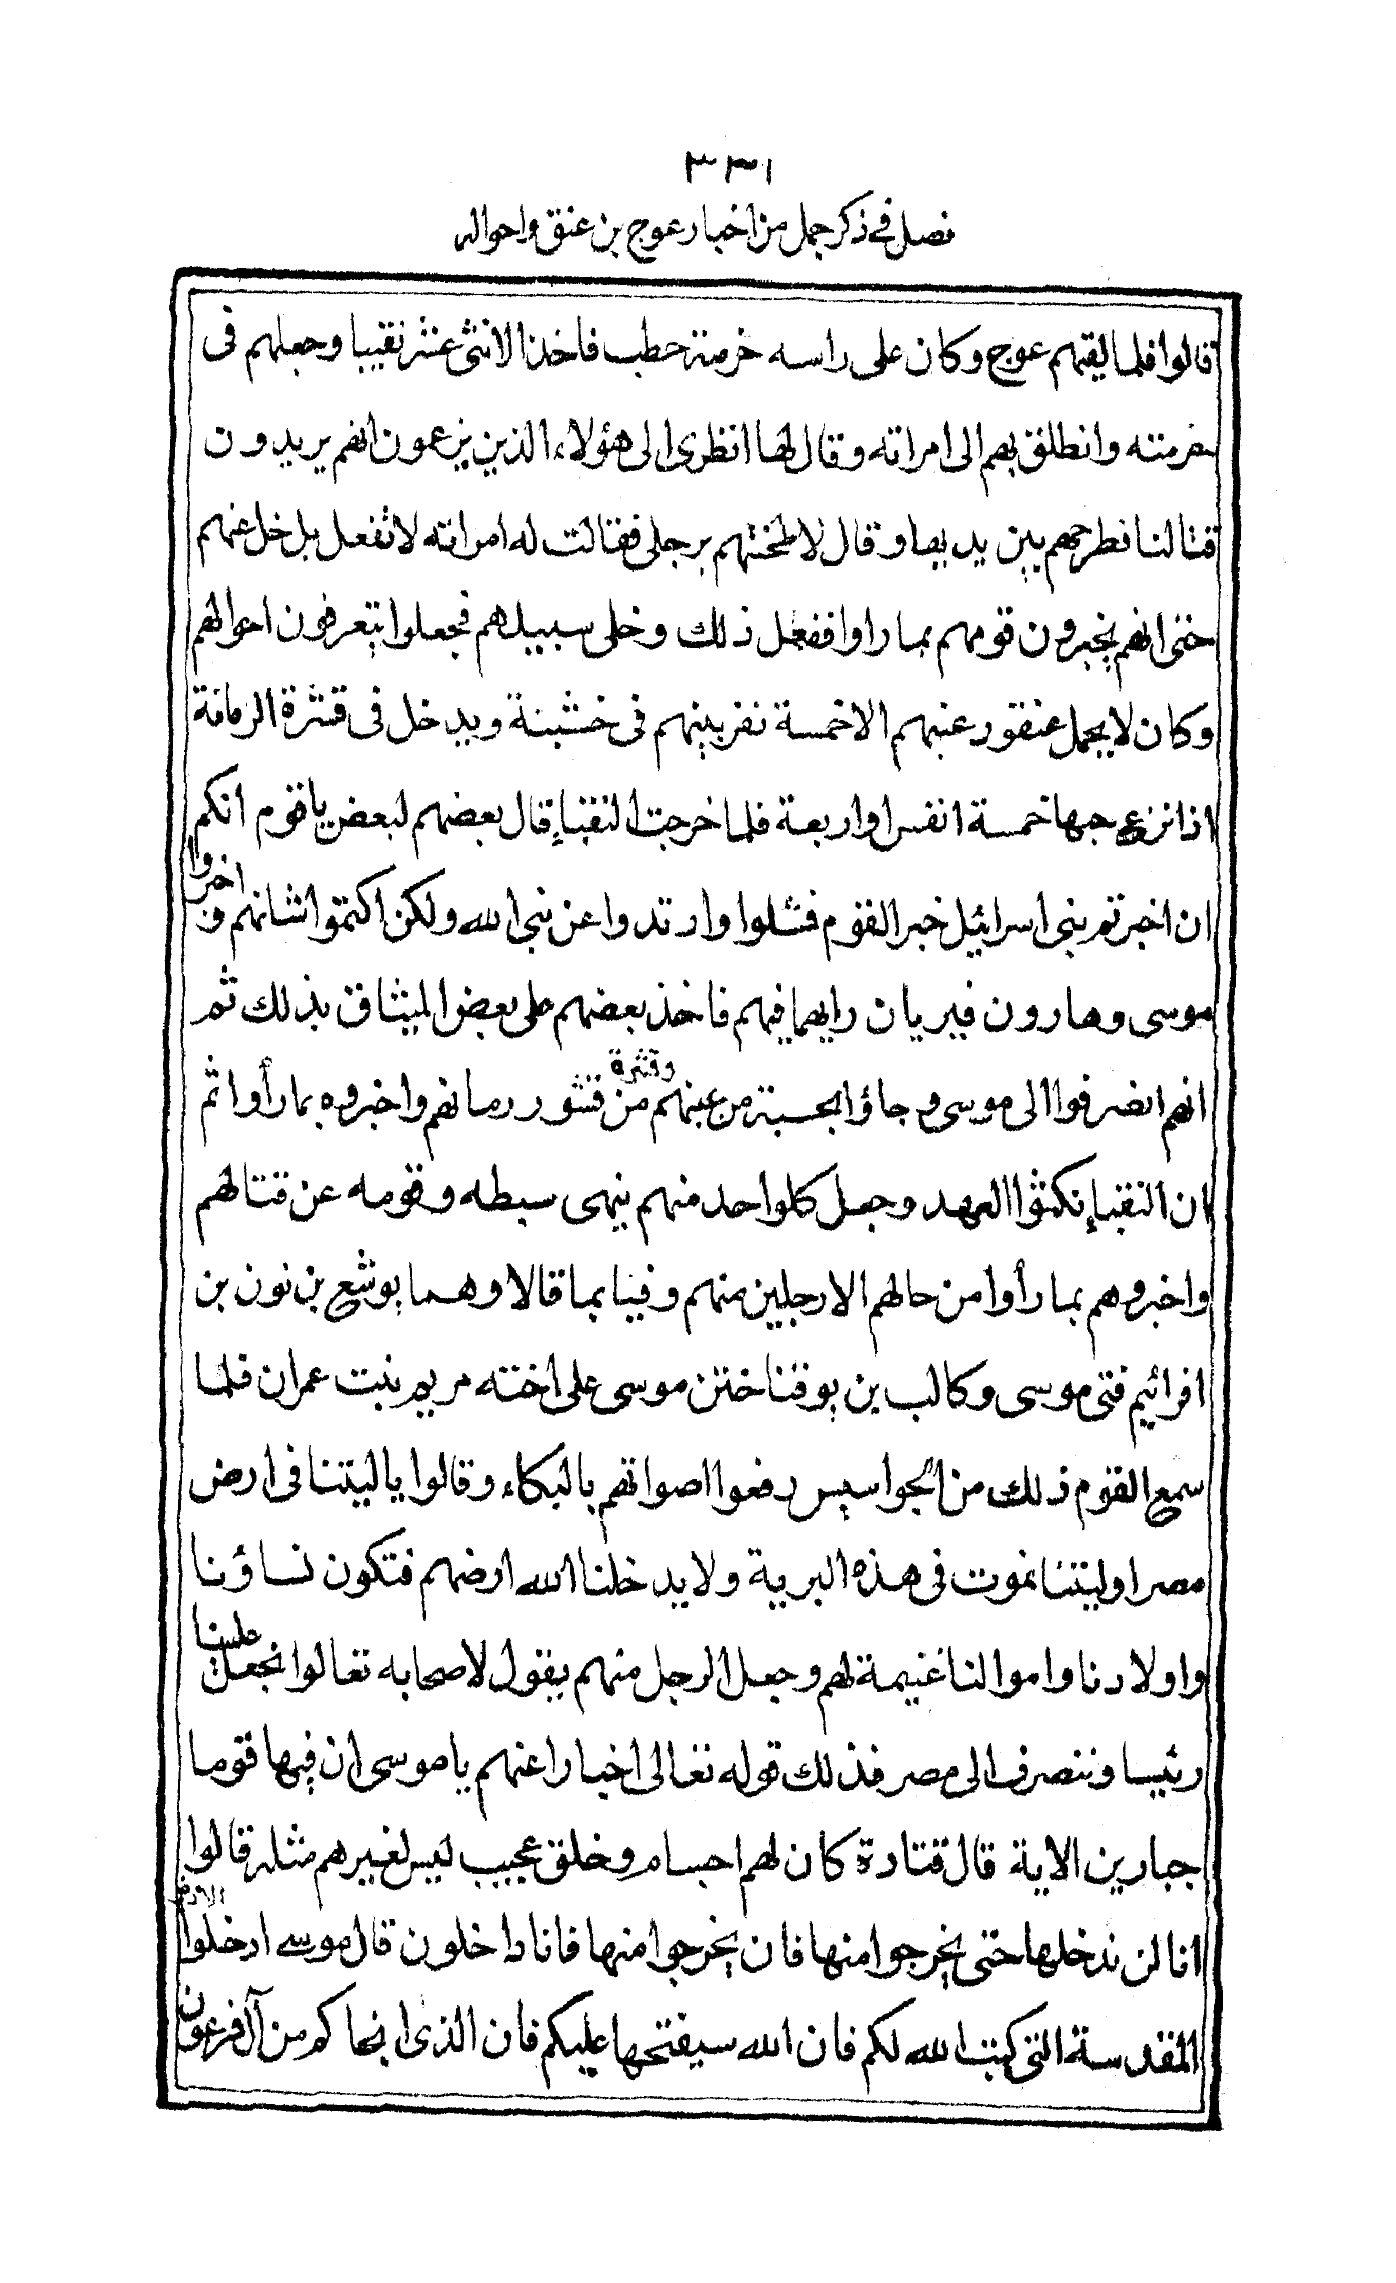 ٣٣١
فصل في ذكر جمل من اخبار عوج بن عنق واحواله
قالوا فلما لقيهم عوج وكان على راسه خرمة حطب فاخذ الاثنى عشر نقيبا وجعلهم فى
خرمته وانطلق بهم الى امراته وقال لها انظرى الى هؤلاء الذين يزعمون انهم يريدون
قتالنا فطرحهم بين يديها وقال لاطحنهم برجلى فقالت له امراته لا تفعل بل خل عنهم
حتى انهم يخبرون قومهم بما راوا ففعل ذلك وخلى سبيلهم فجعلوا يتعرفون احوالهم
وكان لا يحمل عنقود عنبهم الا خمسة نفر بينهم فى خشبة ويدخل فى قشرة الرمانة
اذا نزع حبها خمسة انفس او اربعة فلما خرجت النقباء قال بعضهم لبعض يا قوم انكم
ان اخبرتم بنى اسرائيل خبر القوم فشلوا وارتدوا عن نبى الله ولكن اكتموا شانهم واخبروا
موسى وهارون فيريان رايهما فيهم فاخذ بعضهم على بعض الميثاق بذلك ثم
انهم انصرفوا الى موسى وجاؤا بحبة من عنبهم وقشرة من قشور رمانهم واخبروه بما رأوا ثم
ان النقباء نكثوا العهد وجعل كلواحد منهم ينهى سبطه وقومه عن قتالهم
واخبروهم بما رأوا من حالهم الا رجلين منهم وفيا بما قالا وهما يوشع بن نون بن
افرائيم فتى موسى وكالب بن يوفنا ختن موسى على اخته مريم بنت عمران فلما
سمع القوم ذلك من الجواسيس رفعوا اصواتهم بالبكاء وقالوا يا ليتنا فى ارض
مصر او ليتنا نموت فى هذه البرية ولا يدخلنا الله ارضهم فتكون نساؤنا
واولادنا واموالنا غنيمة لهم وجعل الرجل منهم يقول لاصحابه تعالوا نجعل علينا
رئيسا وننصرف الى مصر فذلك قوله تعالى اخبارا عنهم يا موسى ان فيها قوما
جبارين الاية قال قتادة كان لهم اجسام وخلق عجيب ليس لغيرهم مثله قالوا
انا لن ندخلها حتى يخرجوا منها فان يخرجوا منها فانا داخلون قال موسى ادخلوا الارض
المقدسة التى كتب الله لكم فان الله سيفتحها عليكم فان الذى انجاكم من آل فرعون